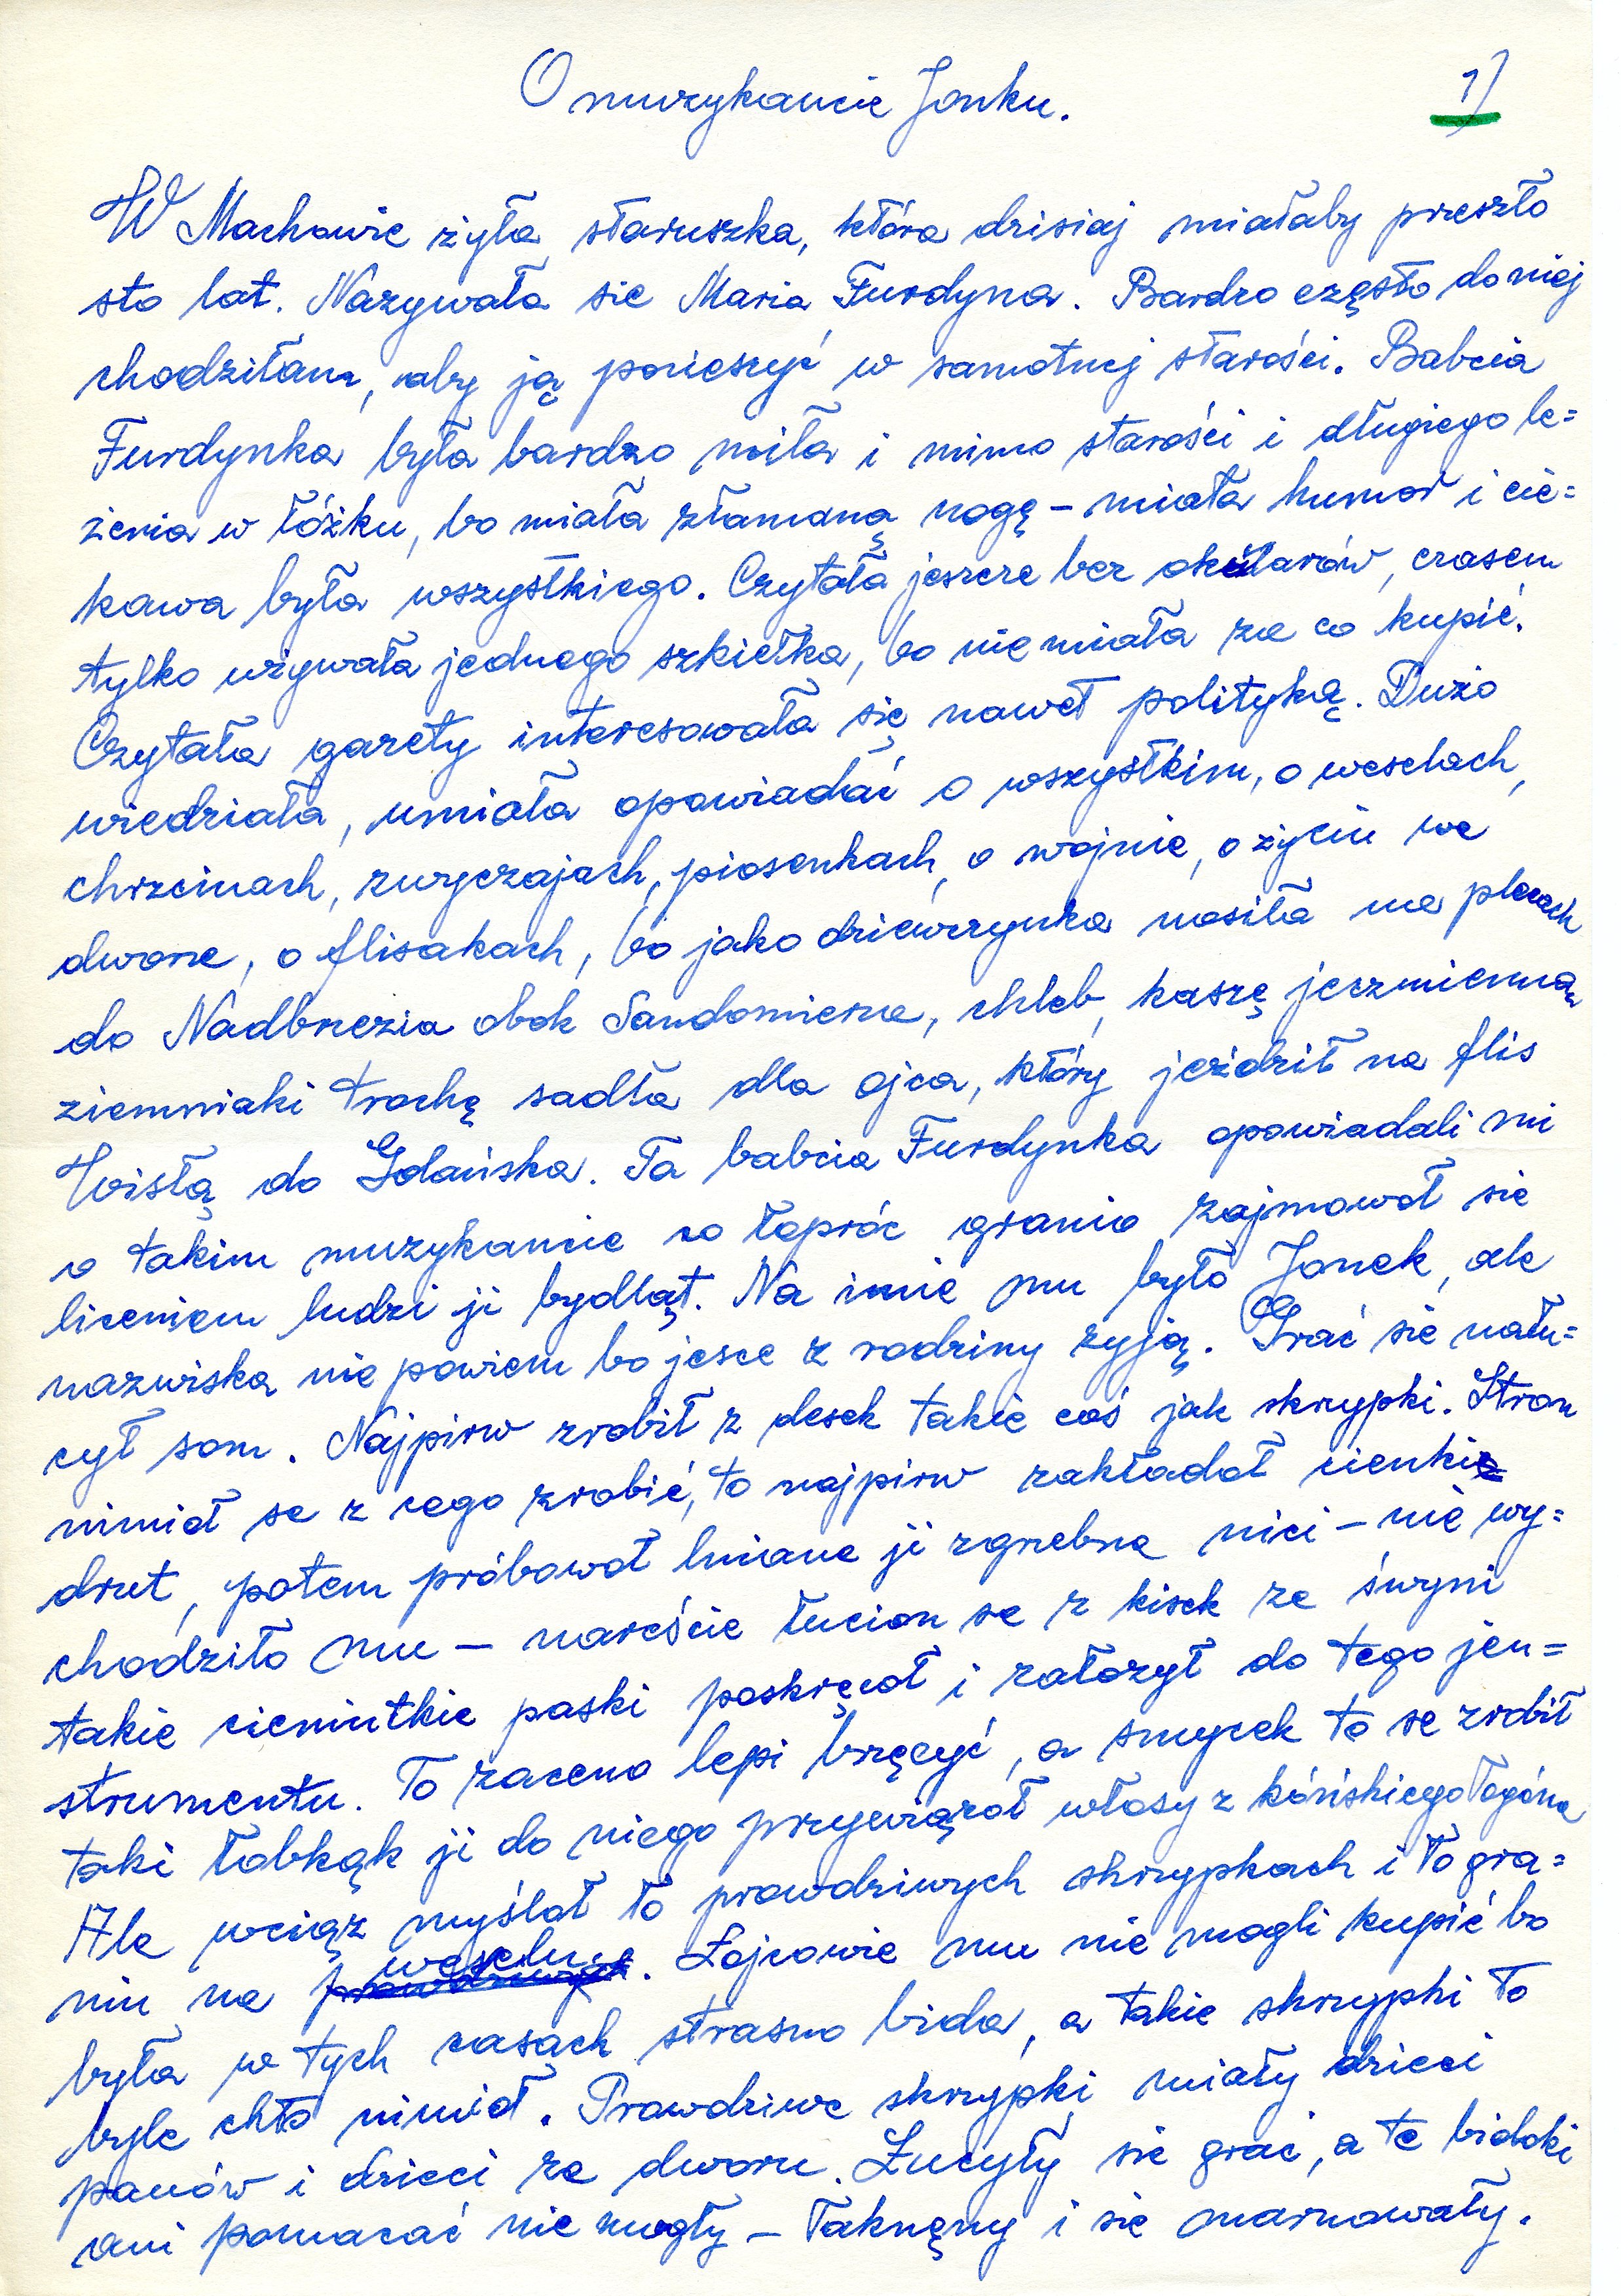 O muzykancie Jonku.
1)
W Machowie żyła staruszka, która dzisiaj miałaby przeszło
sto lat. Nazywała sie Maria Furdyna. Bardzo często do niej
chodziłam, aby ją pocieszyć w samotnej starości. Babcia
Furdynka była bardzo miła i mimo starości i długiego le=
żenia w łóżku, bo miała złamaną nogę – miała humor i cie=
kawa była wszystkiego. Czytała jeszcze bez okularów, czasem
tylko używała jednego szkiełka, bo nie miała za co kupić.
Czytała gazety interesowała się nawet polityką. Dużo
wiedziała, umiała opowiadać o wszystkim, o weselach,
chrzcinach, zwyczajach, piosenkach, o wojnie, o życiu we
dworze, o flisakach, bo jako dziewczynka nosiła na plecach
do Nadbrzezia obok Sandomierza, chleb, kaszę jęczmienną
ziemniaki trochę sadła dla ojca, który jeździł na flis
Wisłą do Gdańska. Ta babcia Furdynka opowiadali mi
o takim muzykancie co łopróc granio zajmowoł sie
liceniem ludzi ji bydląt. Na imie mu było Jonek, ale
nazwiska nie powiem bo jesce z rodziny zyją. Grać sie nału=
cył som. Najpirw zrobił z desek takie coś jak skrzypki. Stron
nimioł se z cego zrobić, to najpirw zakładoł cienki
drut, potem próbowoł lniane ji zgrzebne nici – nie wy=
chodziło mu – nareście łucion se z kisek ze świni
takie cieniutkie paski poskręcoł i załozył do tego jen=
strumentu. To zaceno lepi brzęceć, a smycek to se zrobił
taki łobkąk ji do niego przywiązoł włosy z kóńskiego łogóna
Ale wciąz myśloł ło prawdziwych skrzypkach i ło gra=
niu na weselu. Łojcowie mu nie mogli kupić bo
była w tych casach strasno bida, a takie skrzypki to
byle chto nimioł. Prawdziwe skrzypki miały dzieci
panów i dzieci ze dworu. Łucyły sie grać, a te bidoki
ani pomacać nie mogły – łaknęny i sie marnowały.